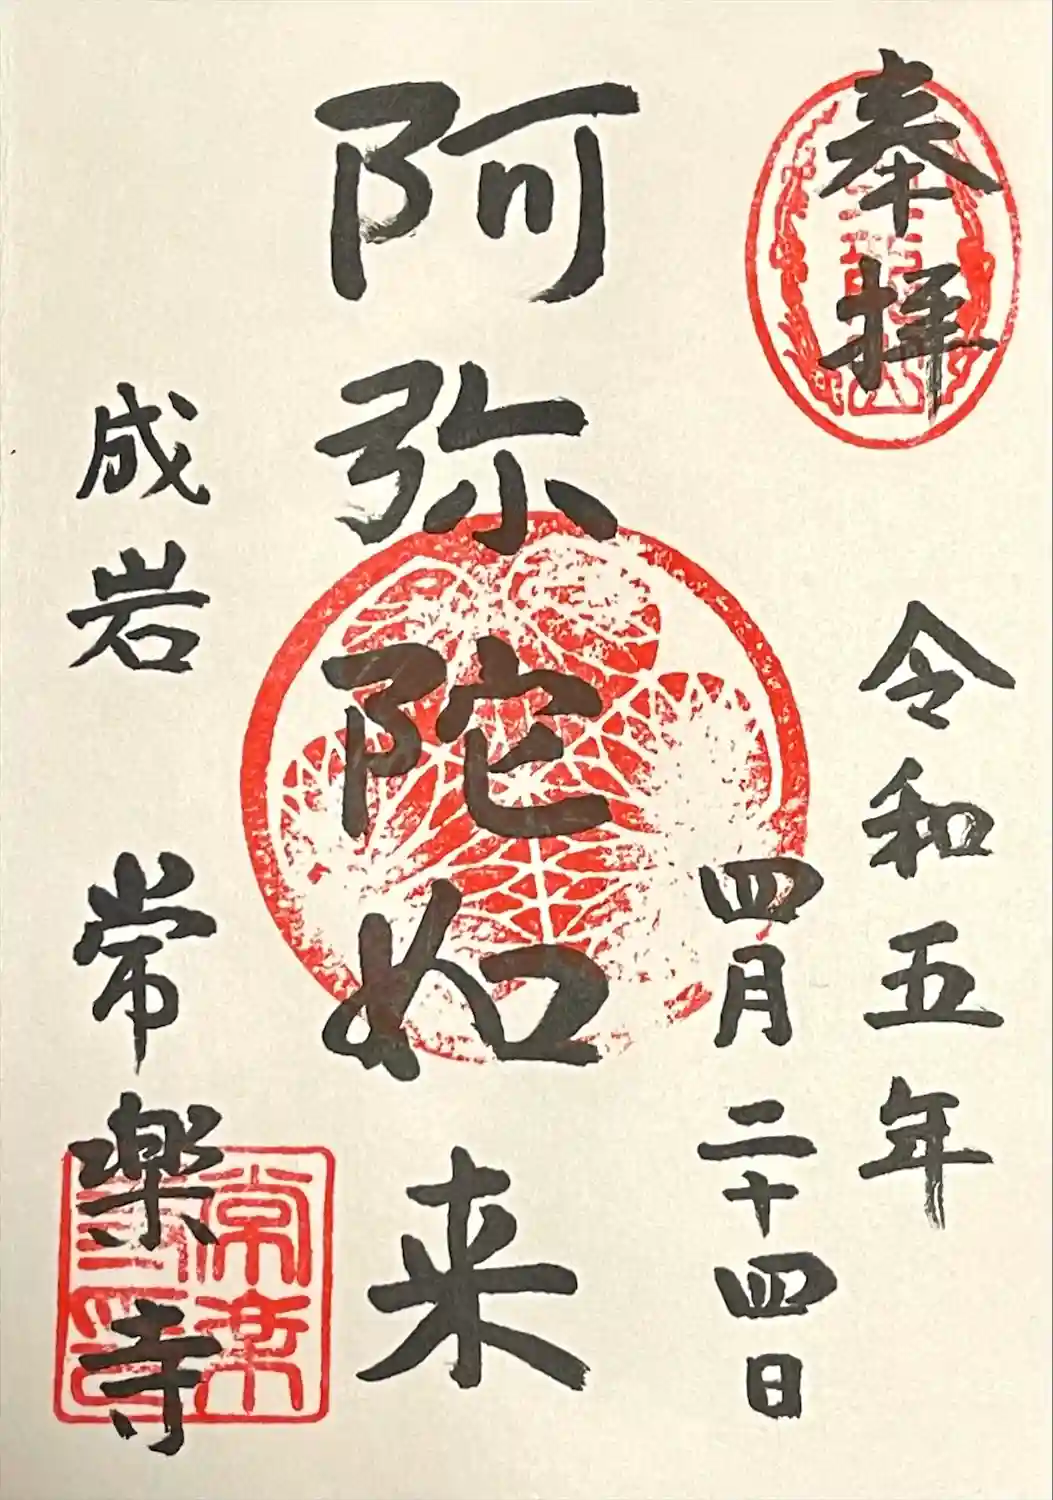 奉拝
令和五年
四月二十四日
阿弥陀如来
成岩 常楽寺
常楽